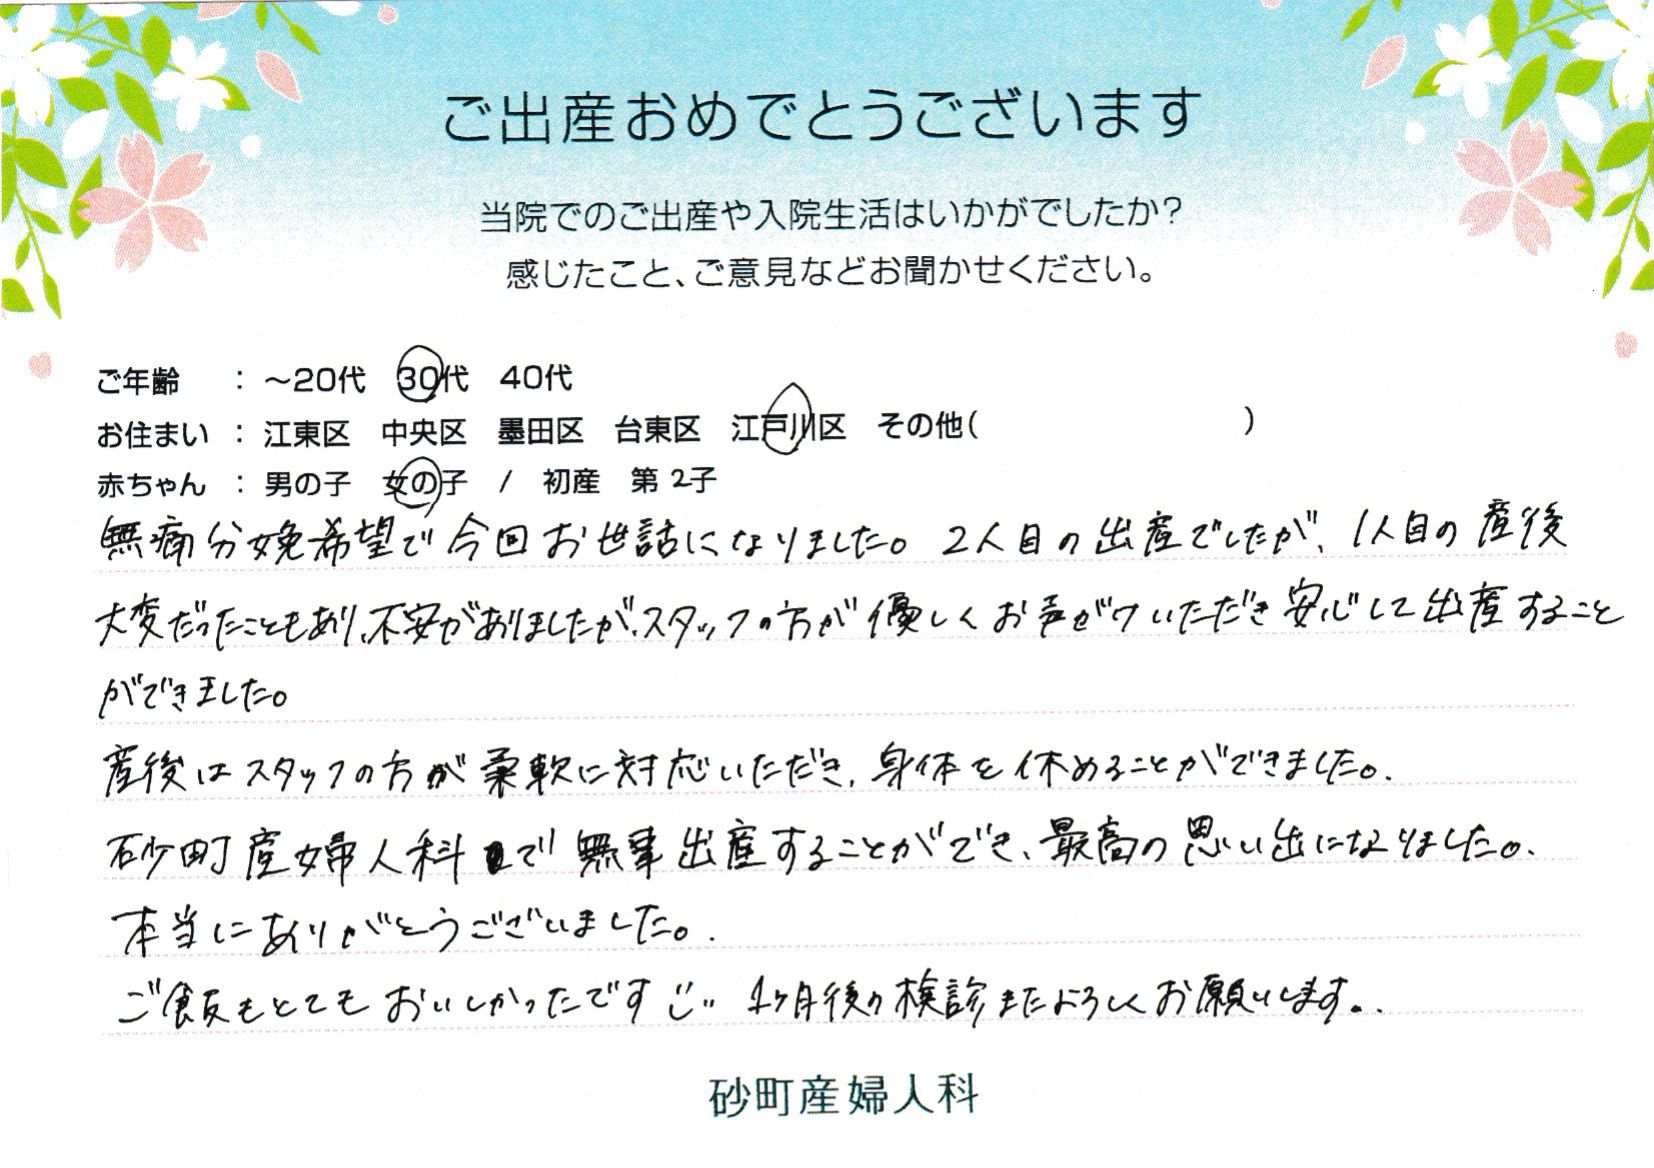 ご出産おめでとうございます
当院でのご出産や入院生活はいかがでしたか?
感じたこと、ご意見などお聞かせください。
ご年齢 : ～20代 30代 40代
お住まい : 江東区 中央区 墨田区 台東区 江戸川区 その他( )
赤ちゃん : 男の子 女の子 / 初産 第2子
無痛分娩希望で今回お世話になりました。2人目の出産でしたが、1人目の産後
大変だったこともあり、不安がありましたが、スタッフの方が優しくお声がけいただき安心して出産すること
ができました。
産後はスタッフの方が柔軟に対応いただき、身体を休めることができました。
砂町産婦人科で無事出産することができ、最高の思い出になりました。
本当にありがとうございました。
ご飯もとてもおいしかったです 1ヶ月後の検診またよろしくお願いします。
砂町産婦人科